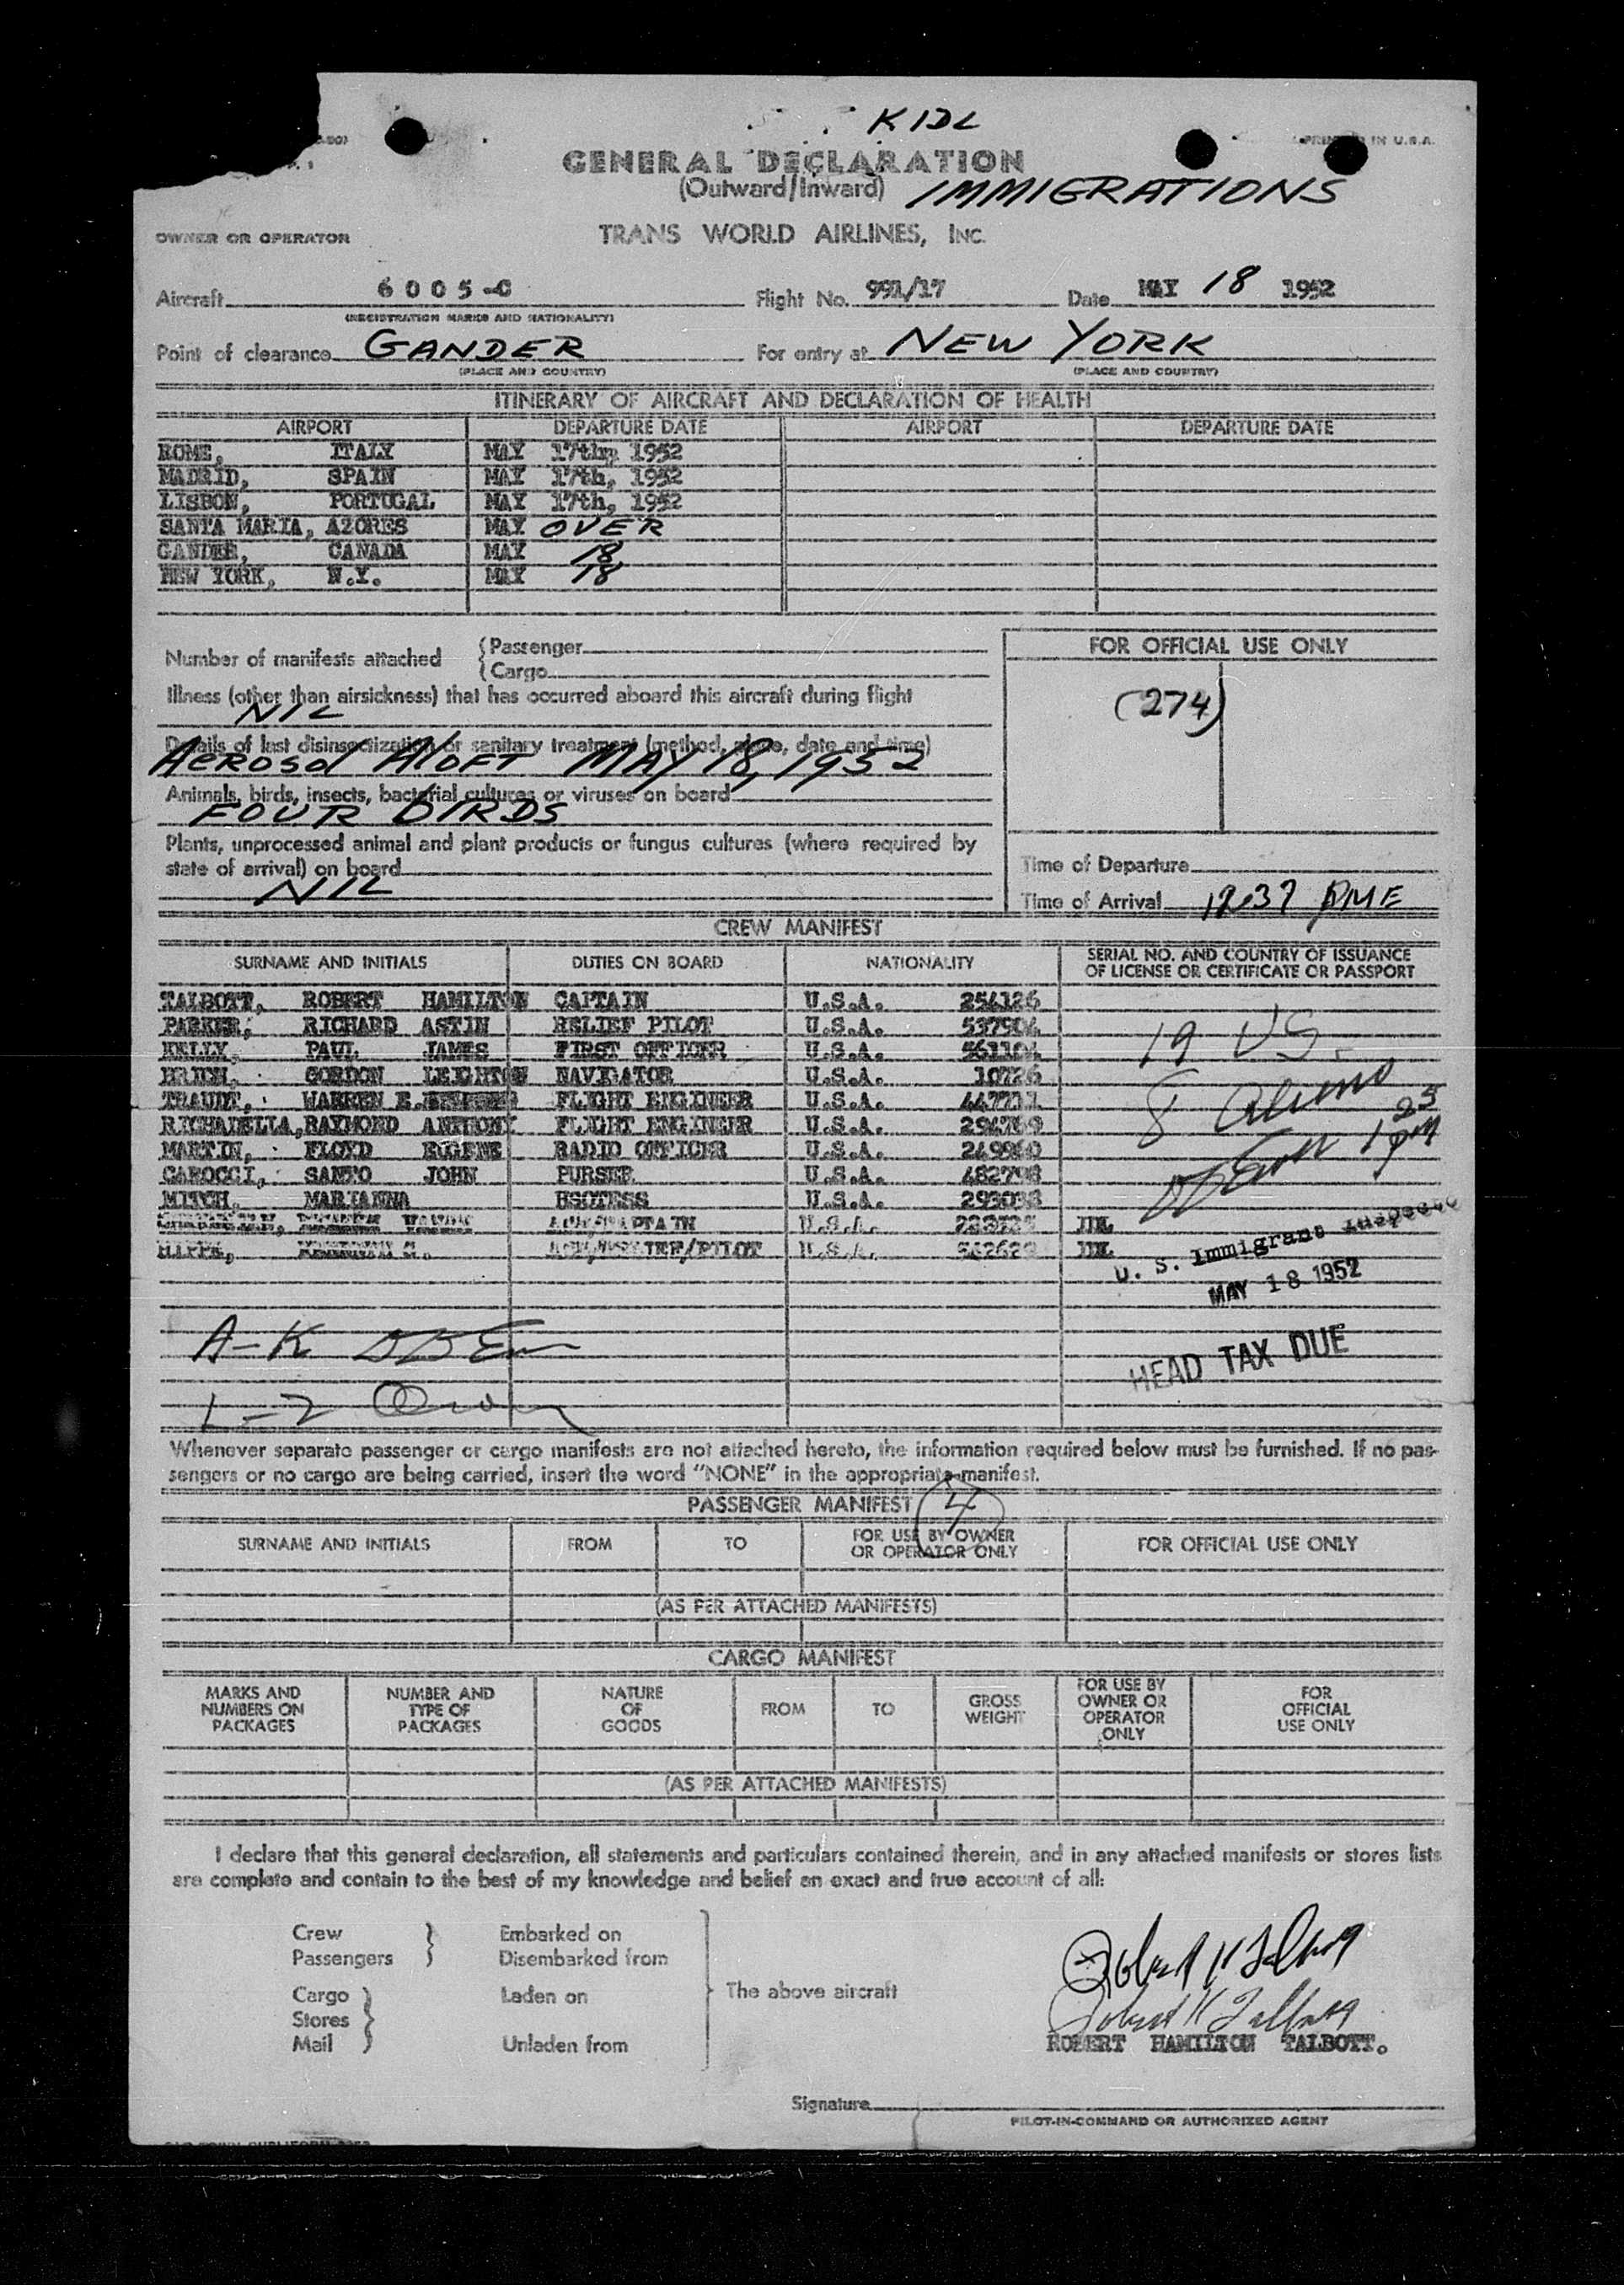 KIDL
PRINTED IN U.S.A.
GENERAL DECLARATION
(Outward/Inward) IMMIGRATIONS
OWNER OR OPERATOR TRANS WORLD AIRLINES, INC.
Aircraft 6005-C Flight No. 991/17 Date MAY 18 1952
(REGISTRATION MARKS AND NATIONALITY)
Point of clearance GANDER For entry at NEW YORK
(PLACE AND COUNTRY) (PLACE AND COUNTRY)
ITINERARY OF AIRCRAFT AND DECLARATION OF HEALTH
AIRPORT DEPARTURE DATE AIRPORT DEPARTURE DATE
ROME, ITALY MAY 17th, 1952
MADRID, SPAIN MAY 17th, 1952
LISBON, PORTUGAL MAY 17th, 1952
SANTA MARIA, AZORES MAY OVER
GANDER, CANADA MAY 18
NEW YORK, N.Y. MAY 18
Number of manifests attached {Passenger
{Cargo
FOR OFFICIAL USE ONLY
(274)
Illness (other than airsickness) that has occurred aboard this aircraft during flight
NIL
Details of last disinsectization or sanitary treatment (method, place, date and time)
AEROSOL ALOFT MAY 18, 1952
Animals, birds, insects, bacterial cultures or viruses on board
FOUR BIRDS
Plants, unprocessed animal and plant products or fungus cultures (where required by
state of arrival) on board
NIL
Time of Departure
Time of Arrival 1237 PME
CREW MANIFEST
SURNAME AND INITIALS DUTIES ON BOARD NATIONALITY SERIAL NO. AND COUNTRY OF ISSUANCE
OF LICENSE OR CERTIFICATE OR PASSPORT
TALBOTT, ROBERT HAMILTON CAPTAIN U.S.A. 254126
PARKER, RICHARD ASTIN RELIEF PILOT U.S.A. 537504
KELLY, PAUL JAMES FIRST OFFICER U.S.A. 561104
GORDON LEIGHTON NAVIGATOR U.S.A. 10726
TRAUDT, WARREN E. FLIGHT ENGINEER U.S.A.
RAYMOND ANTHONY FLIGHT ENGINEER U.S.A.
MARTIN, FLOYD EUGENE RADIO OFFICER U.S.A. 249860
CAROCCI, SANTO JOHN PURSER U.S.A. 482798
MITCH, MARIANNA HSOTESS U.S.A. 293038
U.S.A.
U.S.A.
19 US.
8 Aliens
1 25 pm
U. S. Immigrant Inspector
MAY 18 1952
HEAD TAX DUE
A-K
L-Z
Whenever separate passenger or cargo manifests are not attached hereto, the information required below must be furnished. If no pas-
sengers or no cargo are being carried, insert the word "NONE" in the appropriate manifest.
PASSENGER MANIFEST 4
SURNAME AND INITIALS FROM TO FOR USE BY OWNER
OR OPERATOR ONLY FOR OFFICIAL USE ONLY
(AS PER ATTACHED MANIFESTS)
CARGO MANIFEST
MARKS AND
NUMBERS ON
PACKAGES
NUMBER AND
TYPE OF
PACKAGES
NATURE
OF
GOODS
FROM TO
GROSS
WEIGHT
FOR USE BY
OWNER OR
OPERATOR
ONLY
FOR
OFFICIAL
USE ONLY
(AS PER ATTACHED MANIFESTS)
I declare that this general declaration, all statements and particulars contained therein, and in any attached manifests or stores lists
are complete and contain to the best of my knowledge and belief an exact and true account of all:
Crew } Embarked on
Passengers } Disembarked from
Cargo } Laden on The above aircraft
Stores }
Mail } Unladen from
Robert H Talbott
Robert H Talbott
ROBERT HAMILTON TALBOTT.
Signature
PILOT-IN-COMMAND OR AUTHORIZED AGENT